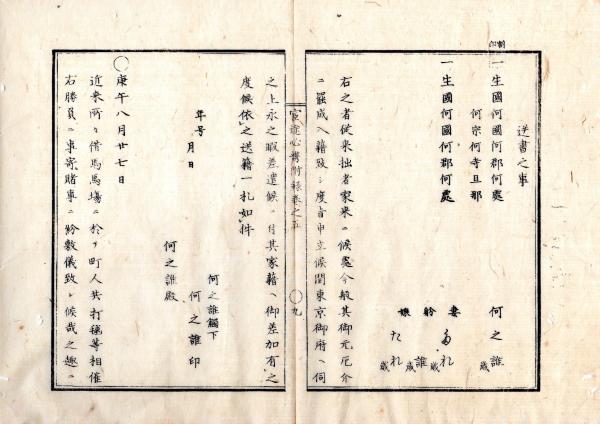 送書之事
一生國何國何郡何處
何宗何寺旦那
何之誰
歳
一生國何國何郡何處
妻 歳
誰 歳
歳
右之者従来拙者家来ニ候處今般其御元厄介
ニ罷成入籍致シ度旨申立候間東京御府ヘ伺
九
之上永之暇差遣候ニ付其家籍ヘ御差加有之
度候依之送籍一札如件
年号 月 日
何之誰觸下
何之誰印
何之誰殿
〇庚午八月廿七日
近来所々借馬馬場ニ於テ町人共打毬等相催
右勝負ニ事寄賭事ニ紛敷儀致シ候哉之趣ニ